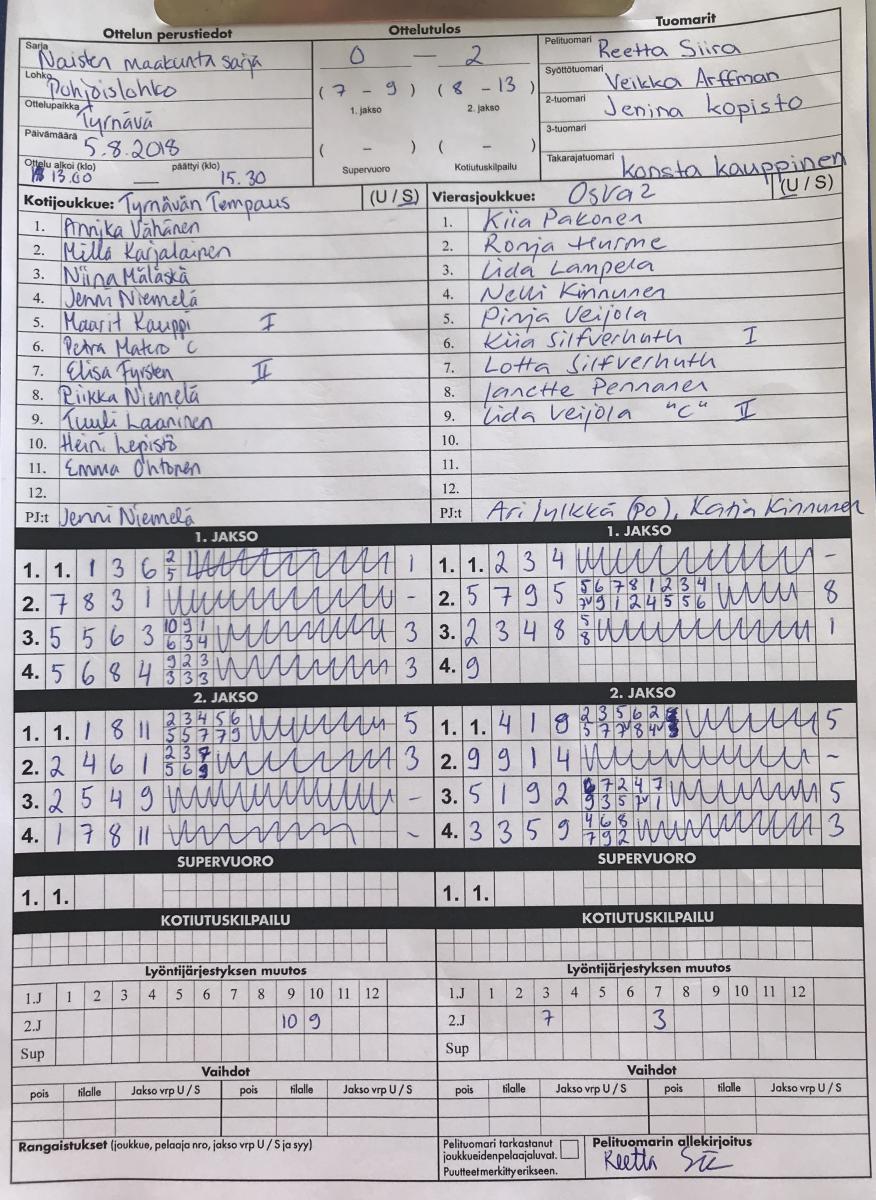 Ottelun perustiedot
Ottelutulos
Tuomarit
Sarja Naisten maakunta sarja
Lohko Pohjoislohko
Ottelupaikka Tyrnävä
Päivämäärä 5.8.2018
Ottelu alkoi (klo) päättyi (klo)
13.00 — 15.30
0 — 2
( 7 - 9 ) ( 8 - 13 )
1. jakso 2. jakso
( - ) ( - )
Supervuoro Kotiutuskilpailu
Pelituomari Reetta Siira
Syöttötuomari Veikka Arffman
2-tuomari Jenina Kopisto
3-tuomari
Takarajatuomari Konsta Kauppinen
Kotijoukkue: Tyrnävän Tempaus (U / S)
1. Annika Vähänen
2. Milla Karjalainen
3. Niina Mäläskä
4. Jenni Niemelä
5. Maarit Kauppi I
6. Petra Matero C
7. Elisa Fyrsten II
8. Riikka Niemelä
9. Tuuli Laaninen
10. Heini Lepistö
11. Emma Ohtonen
12.
PJ:t Jenni Niemelä
Vierasjoukkue: OsVa2 (U / S)
1. Kiia Pakonen
2. Ronja Hurme
3. Iida Lampela
4. Nelli Kinnunen
5. Pinja Veijola
6. Kiia Silfverhuth I
7. Lotta Silfverhuth
8. Janette Pennanen
9. Iida Veijola "C" II
10.
11.
12.
PJ:t Ari Jylkkä (PO), Katja Kinnunen
1. JAKSO
1. 1. 1 3 6 2 1
5
2. 7 8 3 1 -
3. 5 5 6 3 10 9 1 3
6 3 4
4. 5 6 8 4 9 2 3 3
3 3 3
1. JAKSO
1. 1. 2 3 4 -
2. 5 7 9 5 5 6 7 8 1 2 3 4 8
9 1 2 4 5 5 6
3. 2 3 4 8 5 1
8
4. 9
2. JAKSO
1. 1. 1 8 11 2 3 4 5 6 5
5 5 7 7 9
2. 2 4 6 1 2 3 7 3
5 6 9
3. 2 5 4 9 -
4. 1 7 8 11 -
2. JAKSO
1. 1. 4 1 8 2 3 5 6 2 5
2. 9 9 1 4 -
3. 5 1 9 2 7 2 4 7 5
4. 3 3 5 9 4 6 8 3
7 9 2
SUPERVUORO
1. 1.
SUPERVUORO
1. 1.
KOTIUTUSKILPAILU
KOTIUTUSKILPAILU
Lyöntijärjestyksen muutos
1.J 1 2 3 4 5 6 7 8 9 10 11 12
2.J 10 9
Sup
Lyöntijärjestyksen muutos
1.J 1 2 3 4 5 6 7 8 9 10 11 12
2.J 7 3
Sup
Vaihdot
pois tilalle Jakso vrp U / S pois tilalle Jakso vrp U / S
Vaihdot
pois tilalle Jakso vrp U / S pois tilalle Jakso vrp U / S
Rangaistukset (joukkue, pelaaja nro, jakso vrp U / S ja syy)
Pelituomari tarkastanut
joukkueiden pelaajaluvat.
Puutteet merkitty erikseen.
Pelituomarin allekirjoitus
Reetta